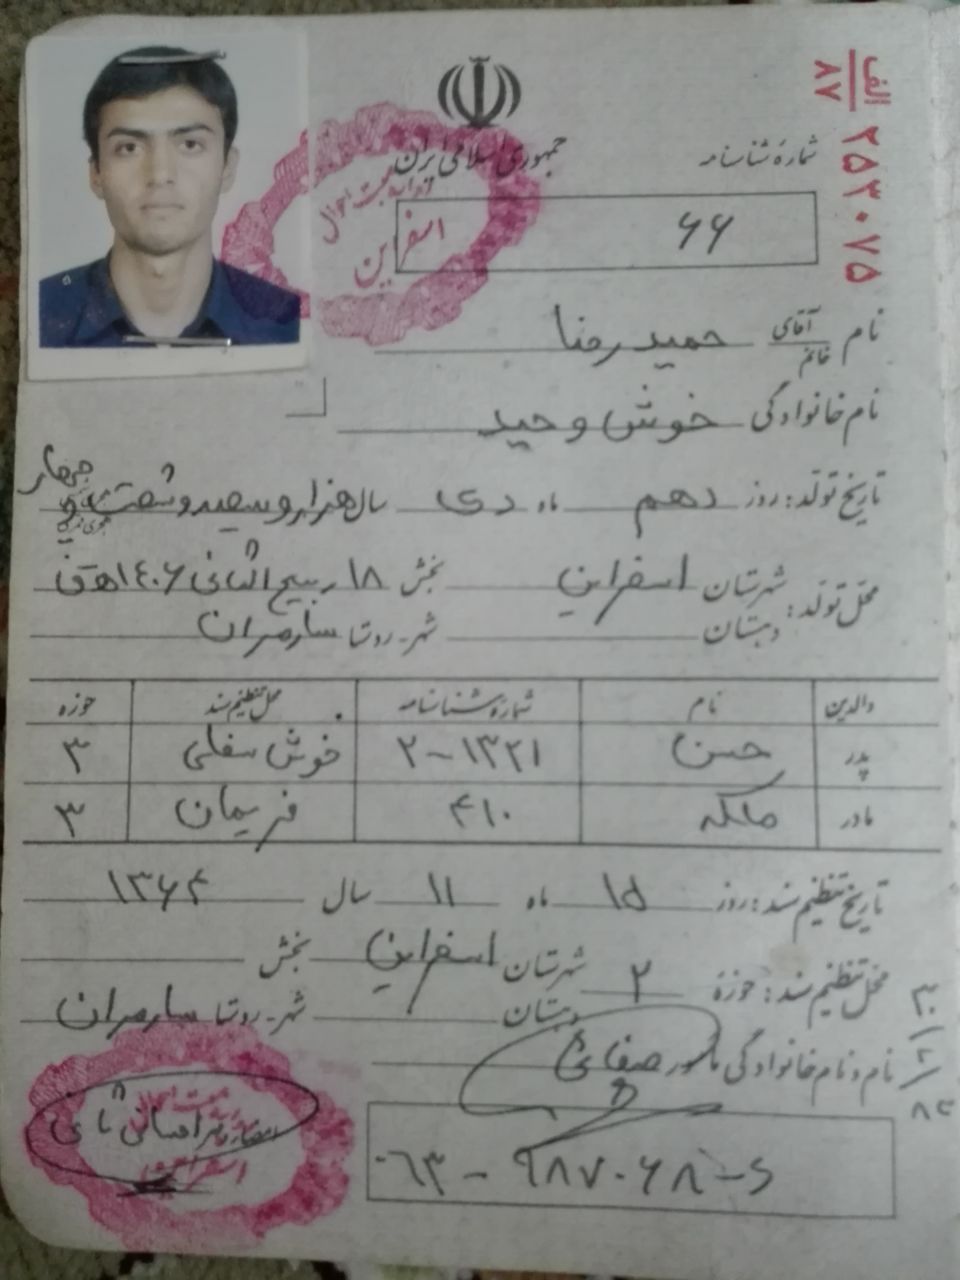 الف
۸۷
۲۵۳۰۷۵
جمهوری اسلامی ایران
شمارهٔ شناسنامه
۶۶
اسفراین
نام آقای خانم حمیدرضا
نام خانوادگی خوش وحید
تاریخ تولد: روز دهم ماه دی سال هزار و سیصد و شصت و چهار
محل تولد: شهرستان اسفراین بخش ۱۸ ربیع الثانی ۱۴۰۶ هـ ق
دهستان شهر - روستا سارمران
والدین نام شمارهٔ شناسنامه محل تنظیم سند حوزه
پدر حسن ۲-۱۳۲۱ خوش سفلی ۳
مادر ملکه ۴۱۰ فریمان ۳
تاریخ تنظیم سند: روز ۱۵ ماه ۱۱ سال ۱۳۶۴
محل تنظیم سند: حوزهٔ ۲ شهرستان اسفراین بخش
دهستان شهر - روستا سارمران
نام و نام خانوادگی مأمور صفائی